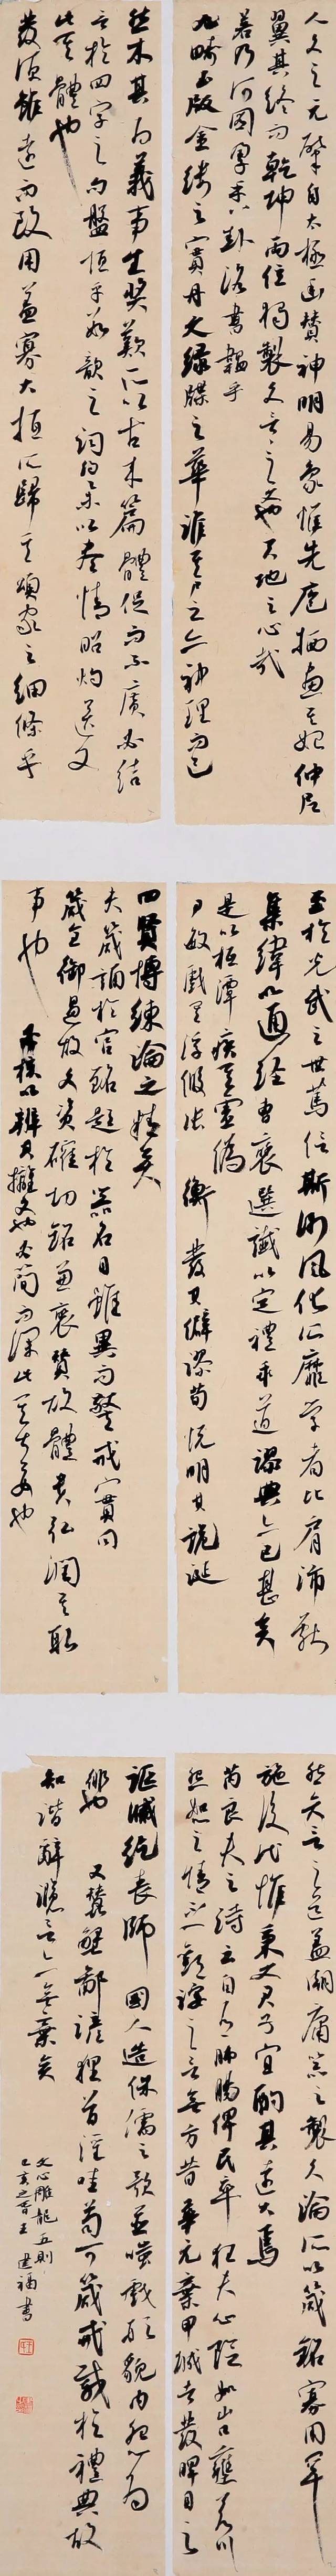 人文之元肇自太極幽贊神明易象惟先庖犧畫其始仲尼
翼其終而乾坤兩位獨製文言言之文也天地之心哉
若乃河圖孕乎八卦洛書韞乎
九疇玉版金鏤之實丹文綠牒之華誰其尸之亦神理而已
然本其為義事生獎歎所以古來篇體促而不廣必結
言於四字之句盤桓乎數韻之詞約舉以盡情昭灼送文
此其體也
發源雖遠而致用蓋寡大抵所歸其頌家之細條乎
至於光武之世篤信斯術風化所靡學者比肩沛獻
集緯以通經曹褒選讖以定禮乖道謬典亦已甚矣
是以桓譚疾其虛偽
尹敏戲其浮假張衡發其僻謬荀悅明其詭誕
四賢博練論之精矣
夫箴誦於官銘題於器名目雖異而警戒實同
箴全御過故文資確切銘兼褒贊故體貴弘潤其取
事也必核以辨其摛文也必簡而深此其大要也
然矢言之道蓋闕庸器之製久淪所以箴銘寡用罕
施後代惟秉文君子宜酌其遠大焉
芮良夫之詩云自有肺腸俾民卒狂夫心險如山口壅若川
怨怒之情不一歡謔之言無方昔華元棄甲城者發睅目之
謳臧紇喪師國人造侏儒之歌並嗤戲形貌內怨為
俳也又蠶蟹鄙諺貍首淫哇苟可箴戒載於禮典故
知諧辭讔言亦無棄矣
文心雕龍五則
己亥之春王建福書